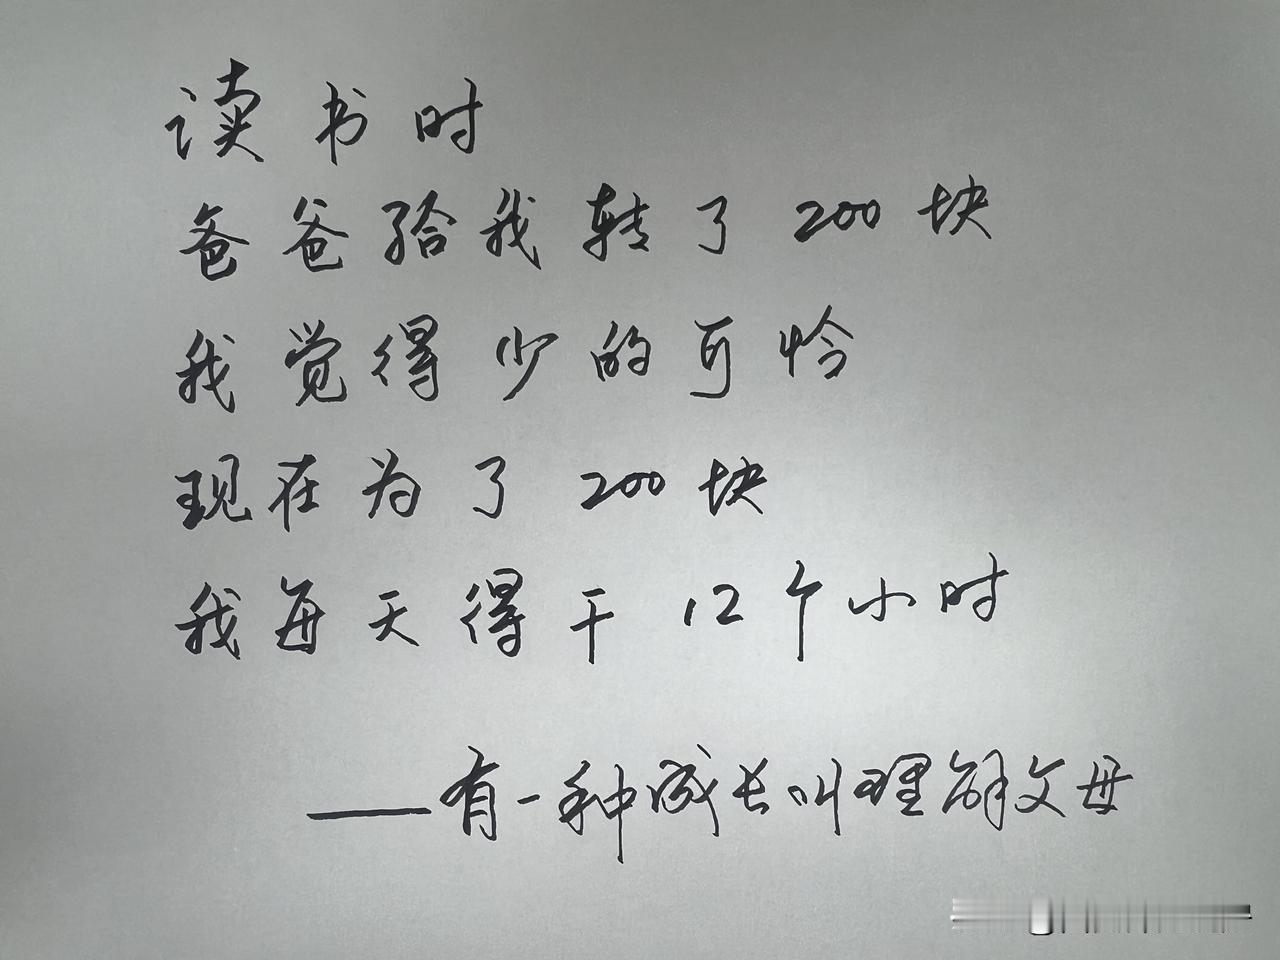 读书时
爸爸给我转了200块
我觉得少的可怜
现在为了200块
我每天得干12个小时
——有一种成长叫理解父母